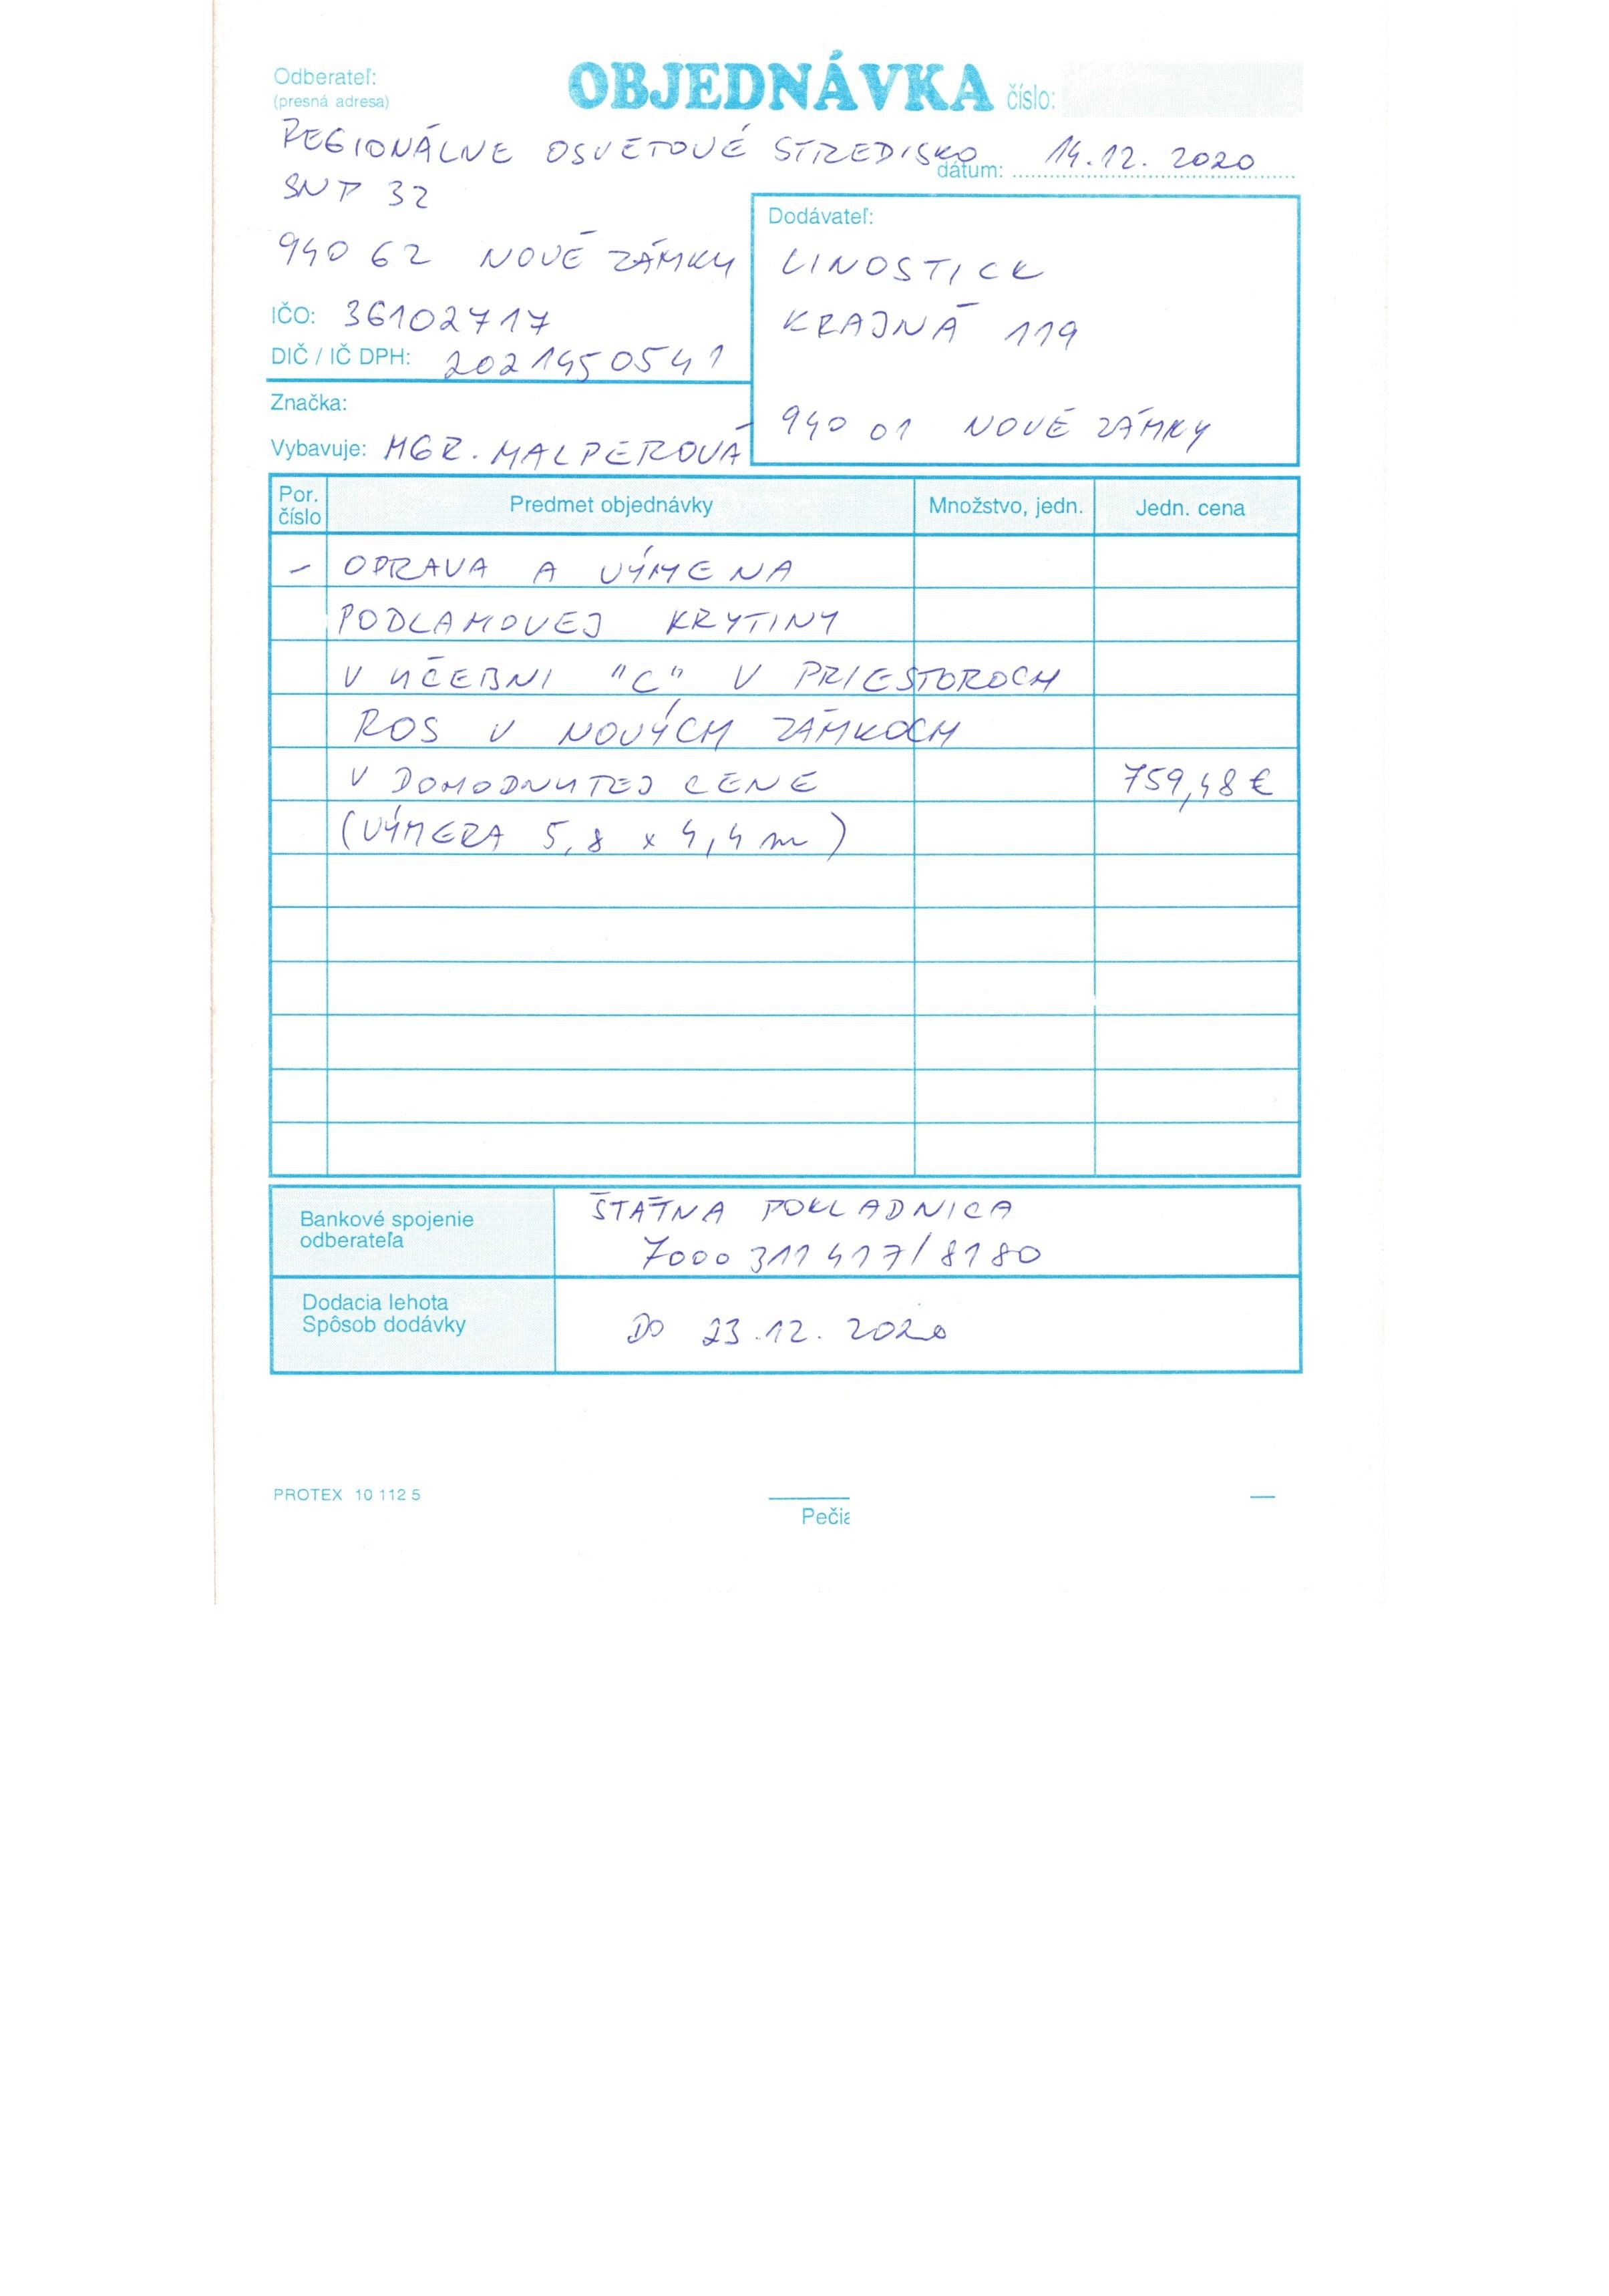 Odberateľ:
(presná adresa)
OBJEDNÁVKA číslo:
REGIONÁLNE OSVETOVÉ STREDISKO
dátum: 14.12. 2020
SNP 32
940 62 NOVÉ ZÁMKY
IČO: 36102717
DIČ / IČ DPH: 2021450541
Značka:
Vybavuje: MGR. MALPEROVÁ
Dodávateľ:
LINOSTICK
KRAJNÁ 119
940 01 NOVÉ ZÁMKY
Por. číslo Predmet objednávky Množstvo, jedn. Jedn. cena
- OPRAVA A VÝMENA
PODLAHOVEJ KRYTINY
V UČEBNI "C" V PRIESTOROCH
ROS V NOVÝCH ZÁMKOCH
V DOHODNUTEJ CENE 759,48 €
(VÝMERA 5,8 x 4,4 m)
Bankové spojenie
odberateľa
ŠTÁTNA POKLADNICA
7000311417/8180
Dodacia lehota
Spôsob dodávky
DO 23.12. 2020
PROTEX 10 112 5
Pečia